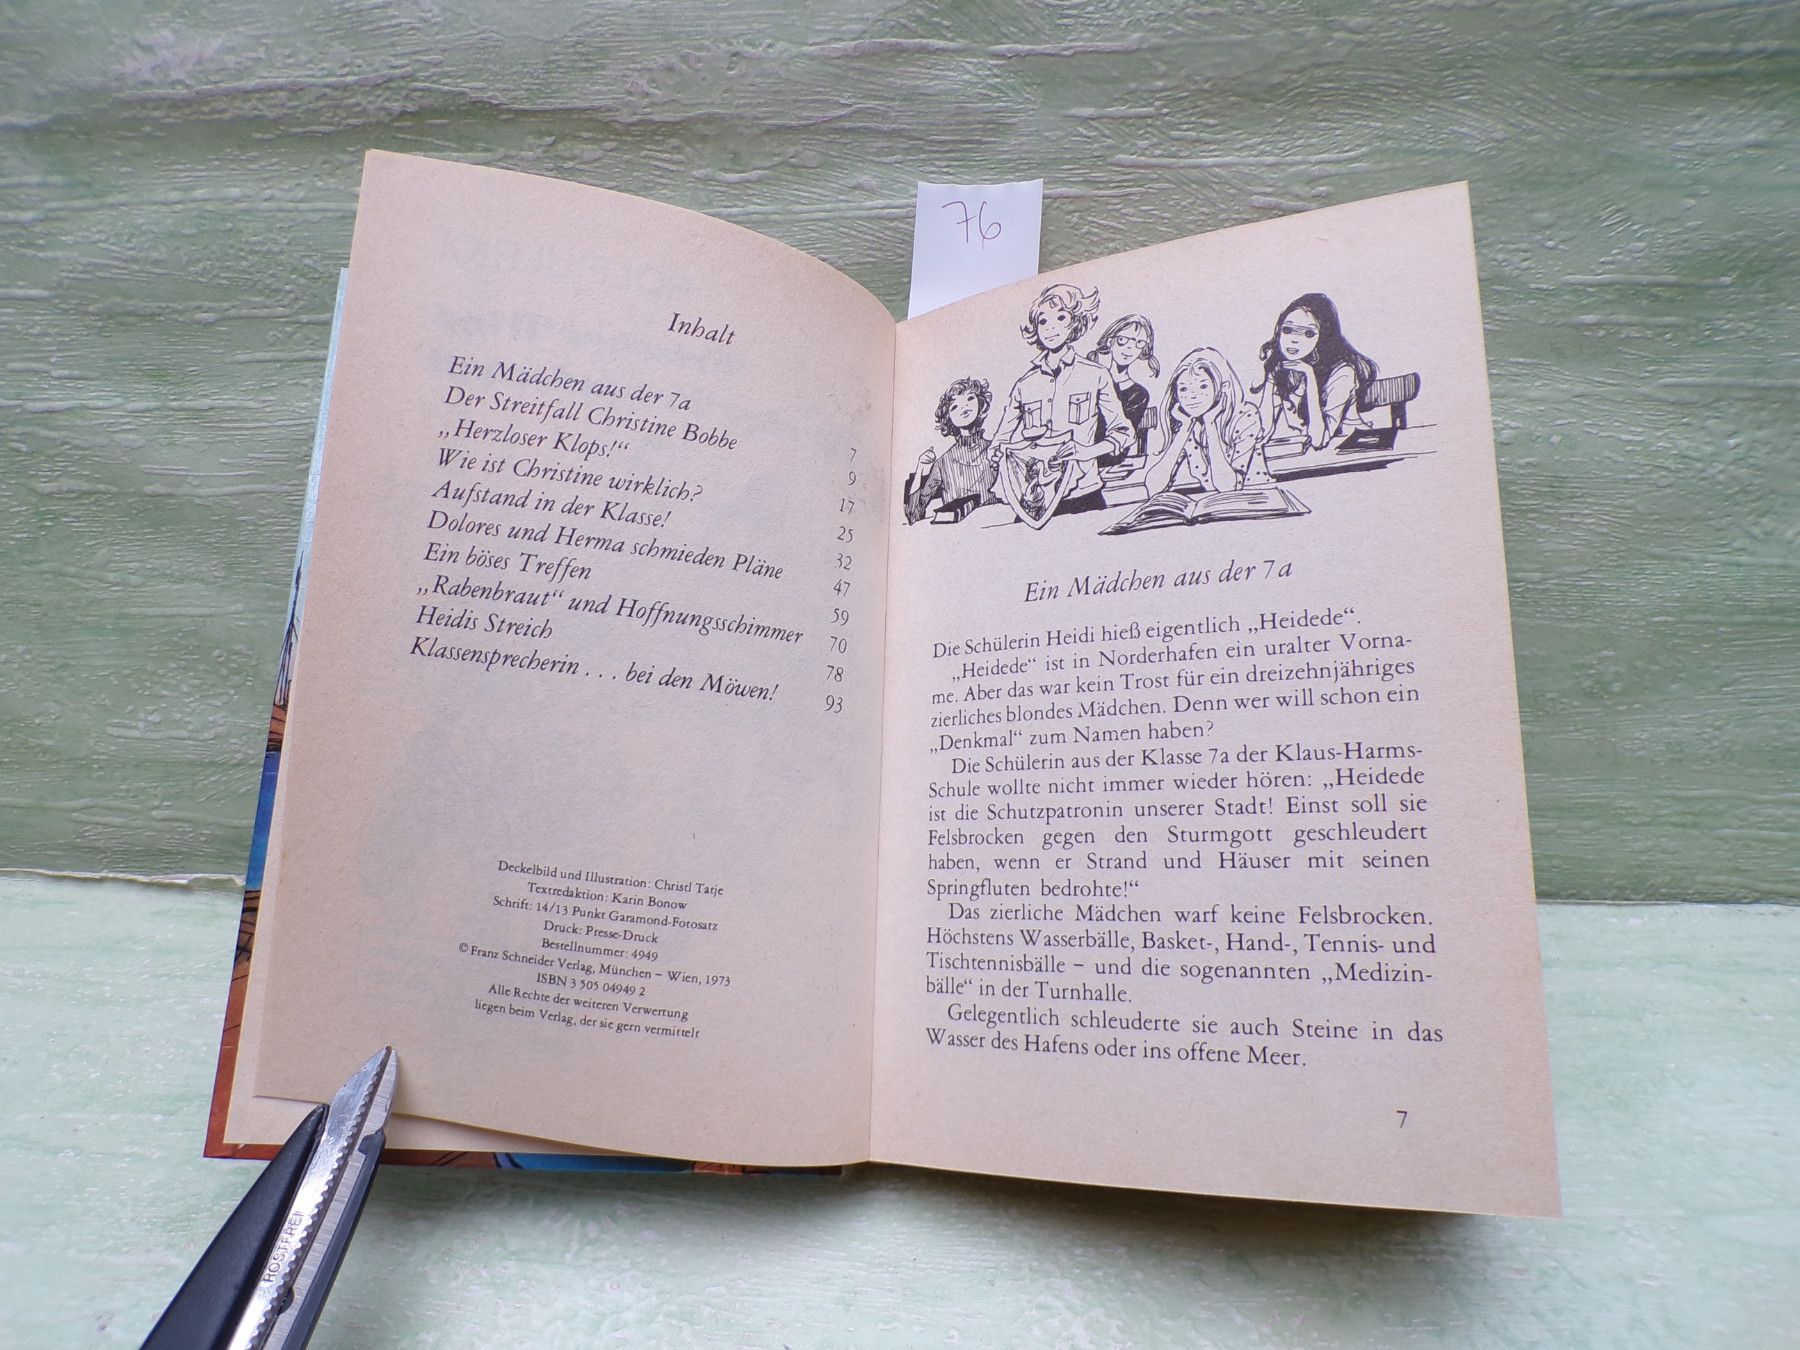 76
Inhalt
Ein Mädchen aus der 7a 7
Der Streitfall Christine Bobbe 9
„Herzloser Klops!“ 17
Wie ist Christine wirklich? 25
Aufstand in der Klasse! 32
Dolores und Herma schmieden Pläne 47
Ein böses Treffen 59
„Rabenbraut“ und Hoffnungsschimmer 70
Heidis Streich 78
Klassensprecherin . . . bei den Möwen! 93
Deckelbild und Illustration: Christl Tatje
Textredaktion: Karin Bonow
Schrift: 14/13 Punkt Garamond-Fotosatz
Druck: Presse-Druck
Bestellnummer: 4949
© Franz Schneider Verlag, München – Wien, 1973
ISBN 3 505 04949 2
Alle Rechte der weiteren Verwertung
liegen beim Verlag, der sie gern vermittelt
Ein Mädchen aus der 7a
Die Schülerin Heidi hieß eigentlich „Heidede“.
„Heidede“ ist in Norderhafen ein uralter Vorna-
me. Aber das war kein Trost für ein dreizehnjähriges
zierliches blondes Mädchen. Denn wer will schon ein
„Denkmal“ zum Namen haben?
Die Schülerin aus der Klasse 7a der Klaus-Harms-
Schule wollte nicht immer wieder hören: „Heidede
ist die Schutzpatronin unserer Stadt! Einst soll sie
Felsbrocken gegen den Sturmgott geschleudert
haben, wenn er Strand und Häuser mit seinen
Springfluten bedrohte!“
Das zierliche Mädchen warf keine Felsbrocken.
Höchstens Wasserbälle, Basket-, Hand-, Tennis- und
Tischtennisbälle – und die sogenannten „Medizin-
bälle“ in der Turnhalle.
Gelegentlich schleuderte sie auch Steine in das
Wasser des Hafens oder ins offene Meer.
7
ROSTFREI